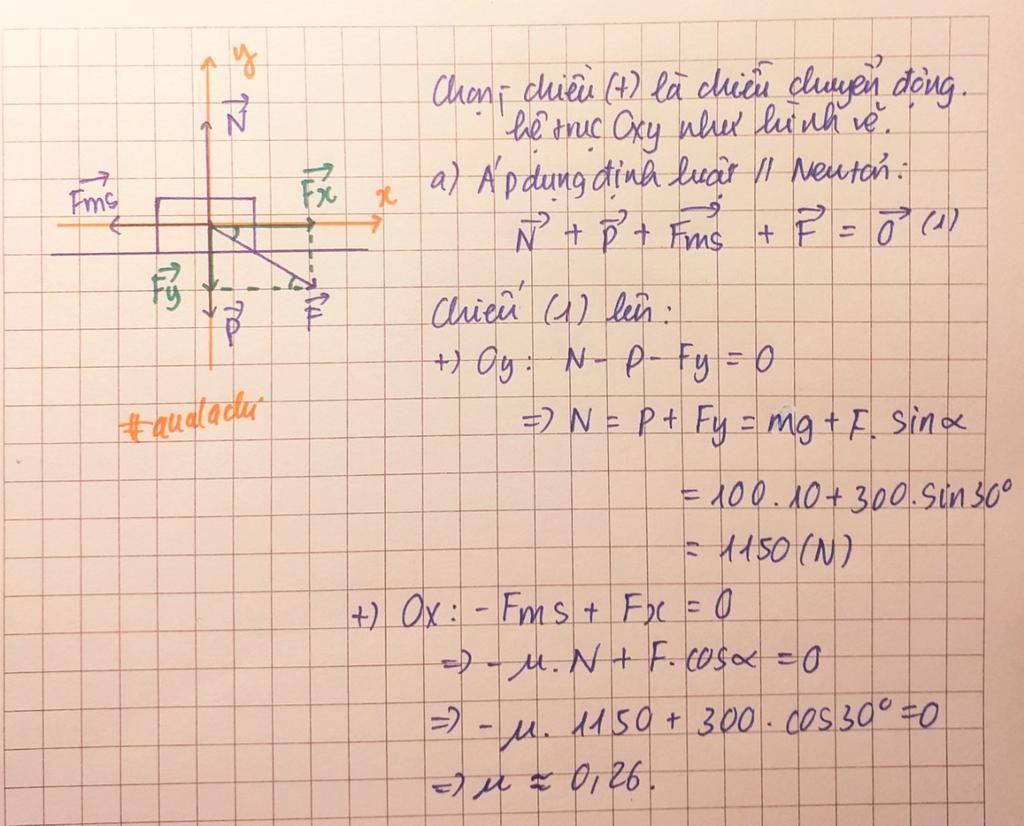 y
N
Fms
Fx
x
Fy
P
F
#qualachi
Chọn: chiều (+) là chiều chuyển động.
hệ trục Oxy như hình vẽ.
a) Áp dụng định luật II Newton:
N + P + Fms + F = 0 (1)
Chiếu (1) lên:
+) Oy: N - P - Fy = 0
=> N = P + Fy = mg + F. sinα
= 100.10 + 300.sin30°
= 1150 (N)
+) Ox: - Fms + Fx = 0
=> - μ. N + F. cosα = 0
=> - μ. 1150 + 300. cos30° = 0
=> μ ≈ 0,26.